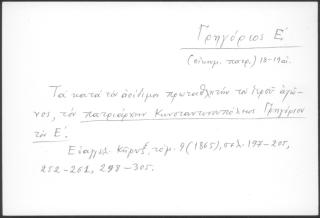 Γρηγόριος Ε΄
(οἰκουμ. πατρ.) 18-19αἰ.
Τὰ κατὰ τὸν ἀοίδιμον πρωταθλητὴν τοῦ ἱεροῦ ἀγῶ-
νος, τὸν πατριάρχην Κωνσταντινουπόλεως Γρηγόριον
τὸν Ε΄.
Εὐαγγελ. Κῆρυξ, τόμ. 9 (1865), σελ. 197-205,
252-261, 298-305.